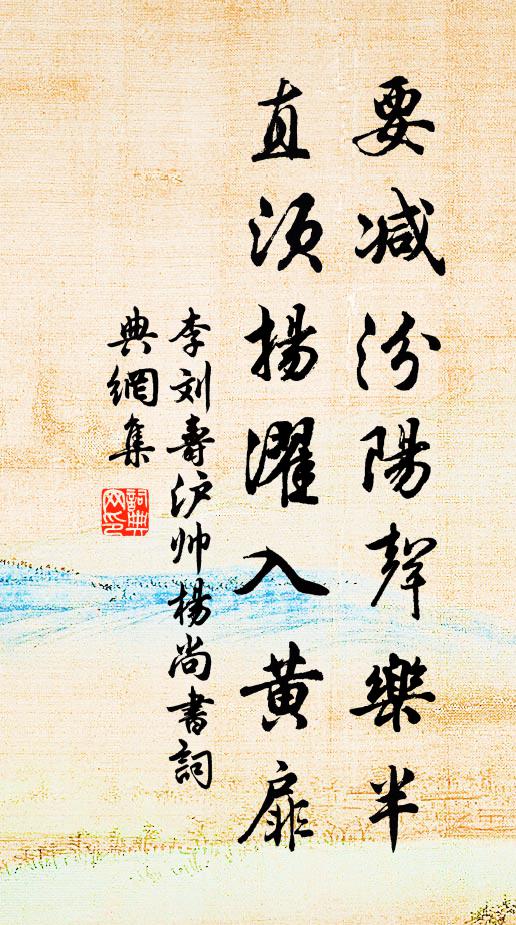 要減汾陽聲樂半
直須揚濯入黃扉
李刘壽沪帅楊尚書詞
典網集
詞典网印